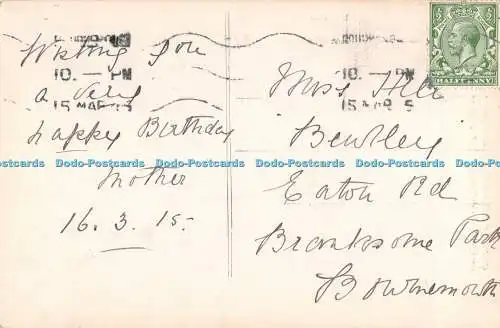 Wishing you
a very
happy Birthday
Mother
16. 3. 15.
10. — PM
15 MAR
10. — PM
15 MAR 5
HALFPENNY
Miss
Bewley
Eaton Rd
Branksome Park
Bournemouth
Dodo-Postcards Dodo-Postcards Dodo-Postcards Dodo-Postcards Dodo-Postcards Dodo-Postcards